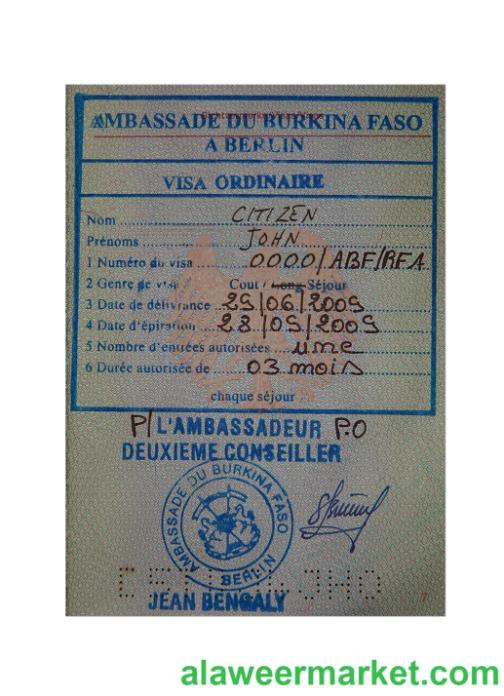 AMBASSADE DU BURKINA FASO
A BERLIN
VISA ORDINAIRE
Nom ........ CITIZEN
Prénoms ........ JOHN
1 Numéro du visa ........ 0000/ABF/RFA
2 Genre de visa Cout / Long Séjour
3 Date de délivrance ... 29/06/2009
4 Date d'épiration ... 28/09/2009
5 Nombre d'entrées autorisées ... une
6 Durée autorisée de ... 03 mois
chaque séjour
P/ L'AMBASSADEUR P.O
DEUXIEME CONSEILLER
AMBASSADE DU BURKINA FASO
BERLIN
JEAN BENGALY
alaweermarket.com